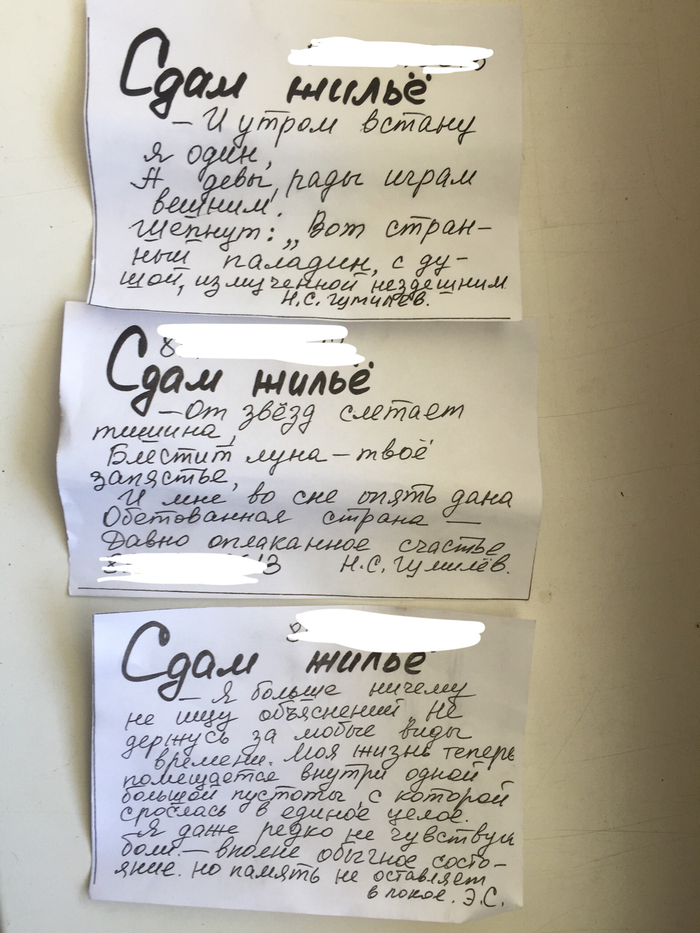 Сдам жильё
— И утром встану
я один,
А девы, рады играм
вешним,
Шепнут: „Вот стран-
ный паладин, с ду-
шой, измученной нездешним
Н.С. Гумилёв.
8
Сдам жильё
— От звёзд слетает
тишина,
Блестит луна – твоё
запястье,
И мне во сне опять дана
Обетованная страна —
Давно оплаканное счастье
Н.С. Гумилёв.
8
Сдам жильё
— Я больше ничему
не ищу объяснений. Не
держусь за любые виды
времени. Моя жизнь теперь
помещается внутри одной
большой пустоты, с которой
срослась в единое целое.
Я даже редко не чувствую
боли. — вполне обычное состо-
яние. но память не оставляет
в покое. Э.С.